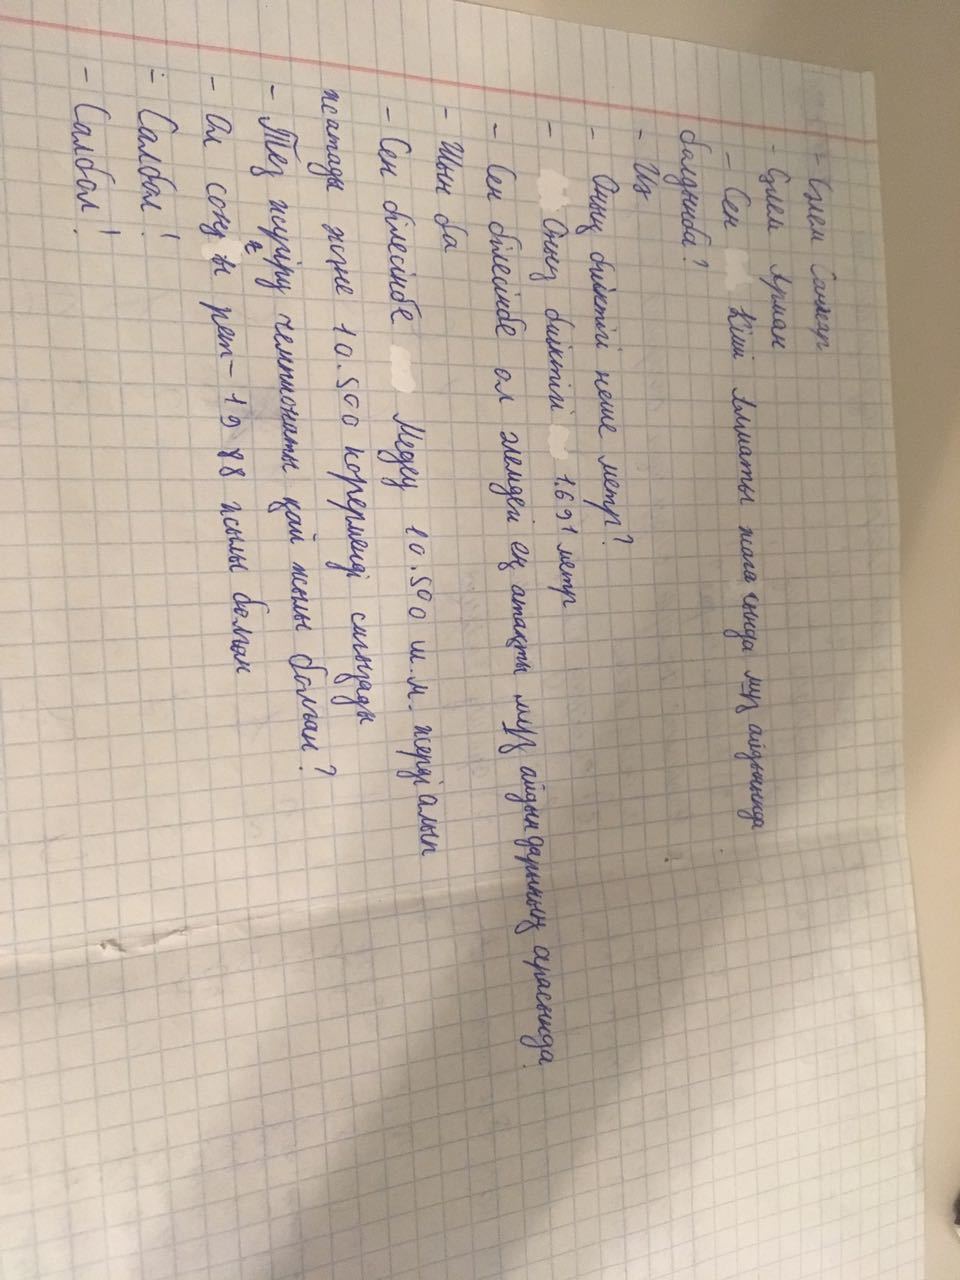 - Сәлем Санжар
- Сәлем Арман
- Сен Кіші Алматы жағасында мұз айдынында
болдыңба?
- Иә
- Оның биіктігі неше метр?
- Оның биіктігі 1.691 метр
- Сен білесіңбе ол әлемдегі ең атақты мұз айдындарының арасында.
- Шын ба
- Сен білесіңбе Медеу 10.500 м.м. жерді алып
жатады және 10.500 көрерменді сиғызады
- Тез жүгіру чемпионаты қай жылы болған?
- Ал соңғы рет - 1988 жылы болған
- Салбол!
- Салбол!